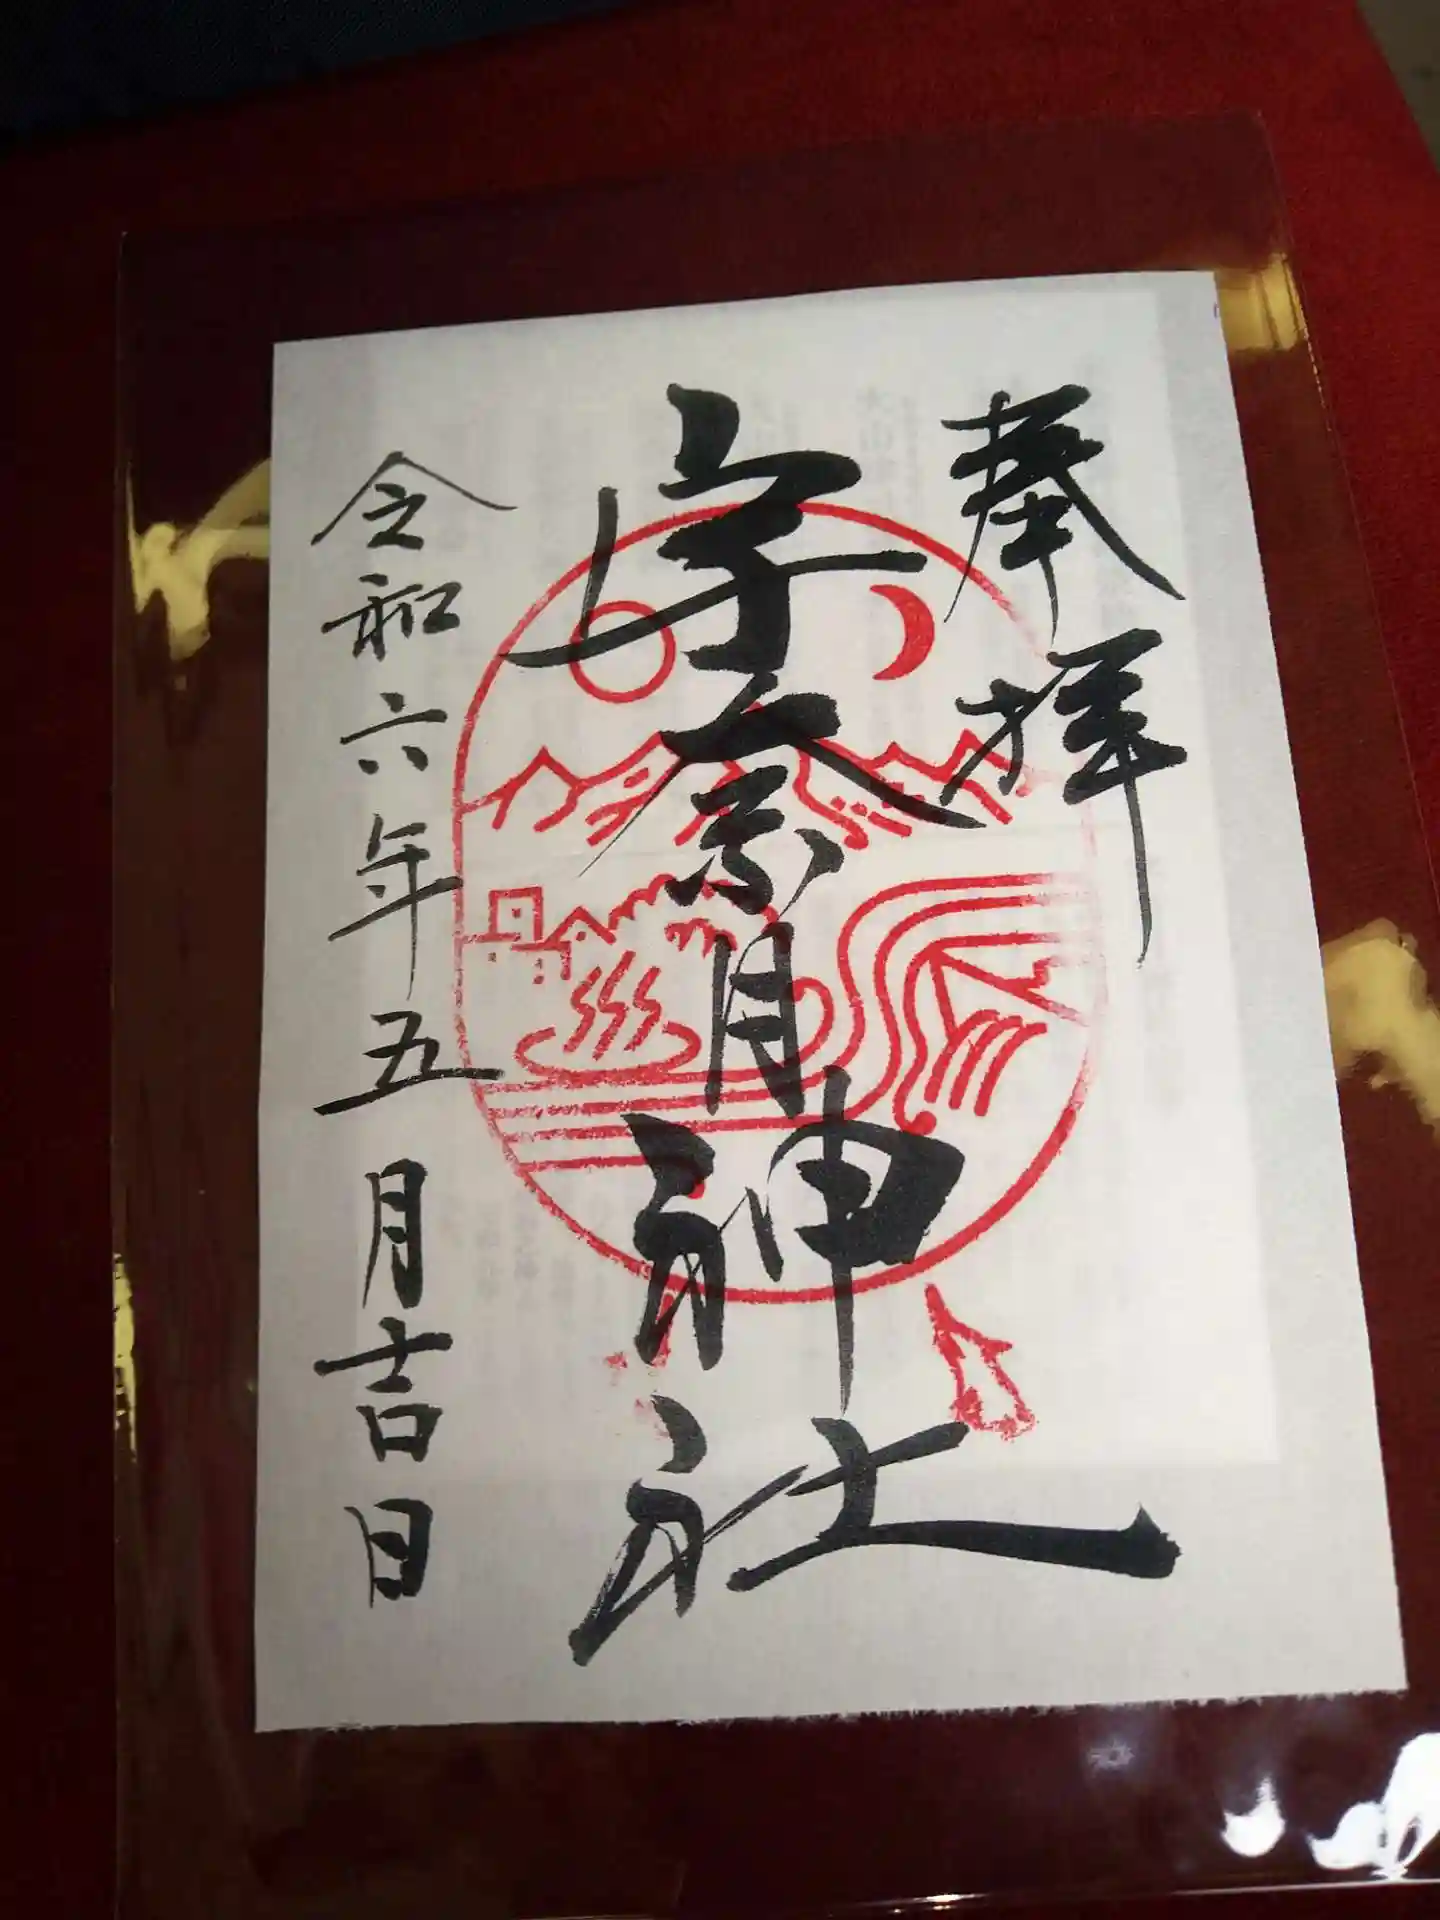 奉拝
宇奈月神社
令和六年五月吉日